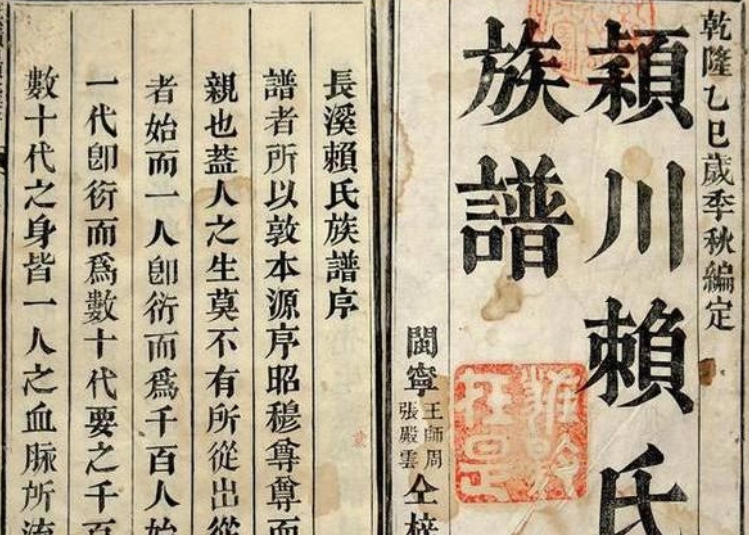 乾隆乙巳歲季秋編定
穎川賴氏
族譜
閩寧王師周張殿雲仝梓
長溪賴氏族譜序
譜者所以敦本源序昭穆尊尊而
親也蓋人之生莫不有所從出從
者始而一人卽衍而爲千百人始
一代卽衍而爲數十代要之千百
數十代之身皆一人之血脈所流